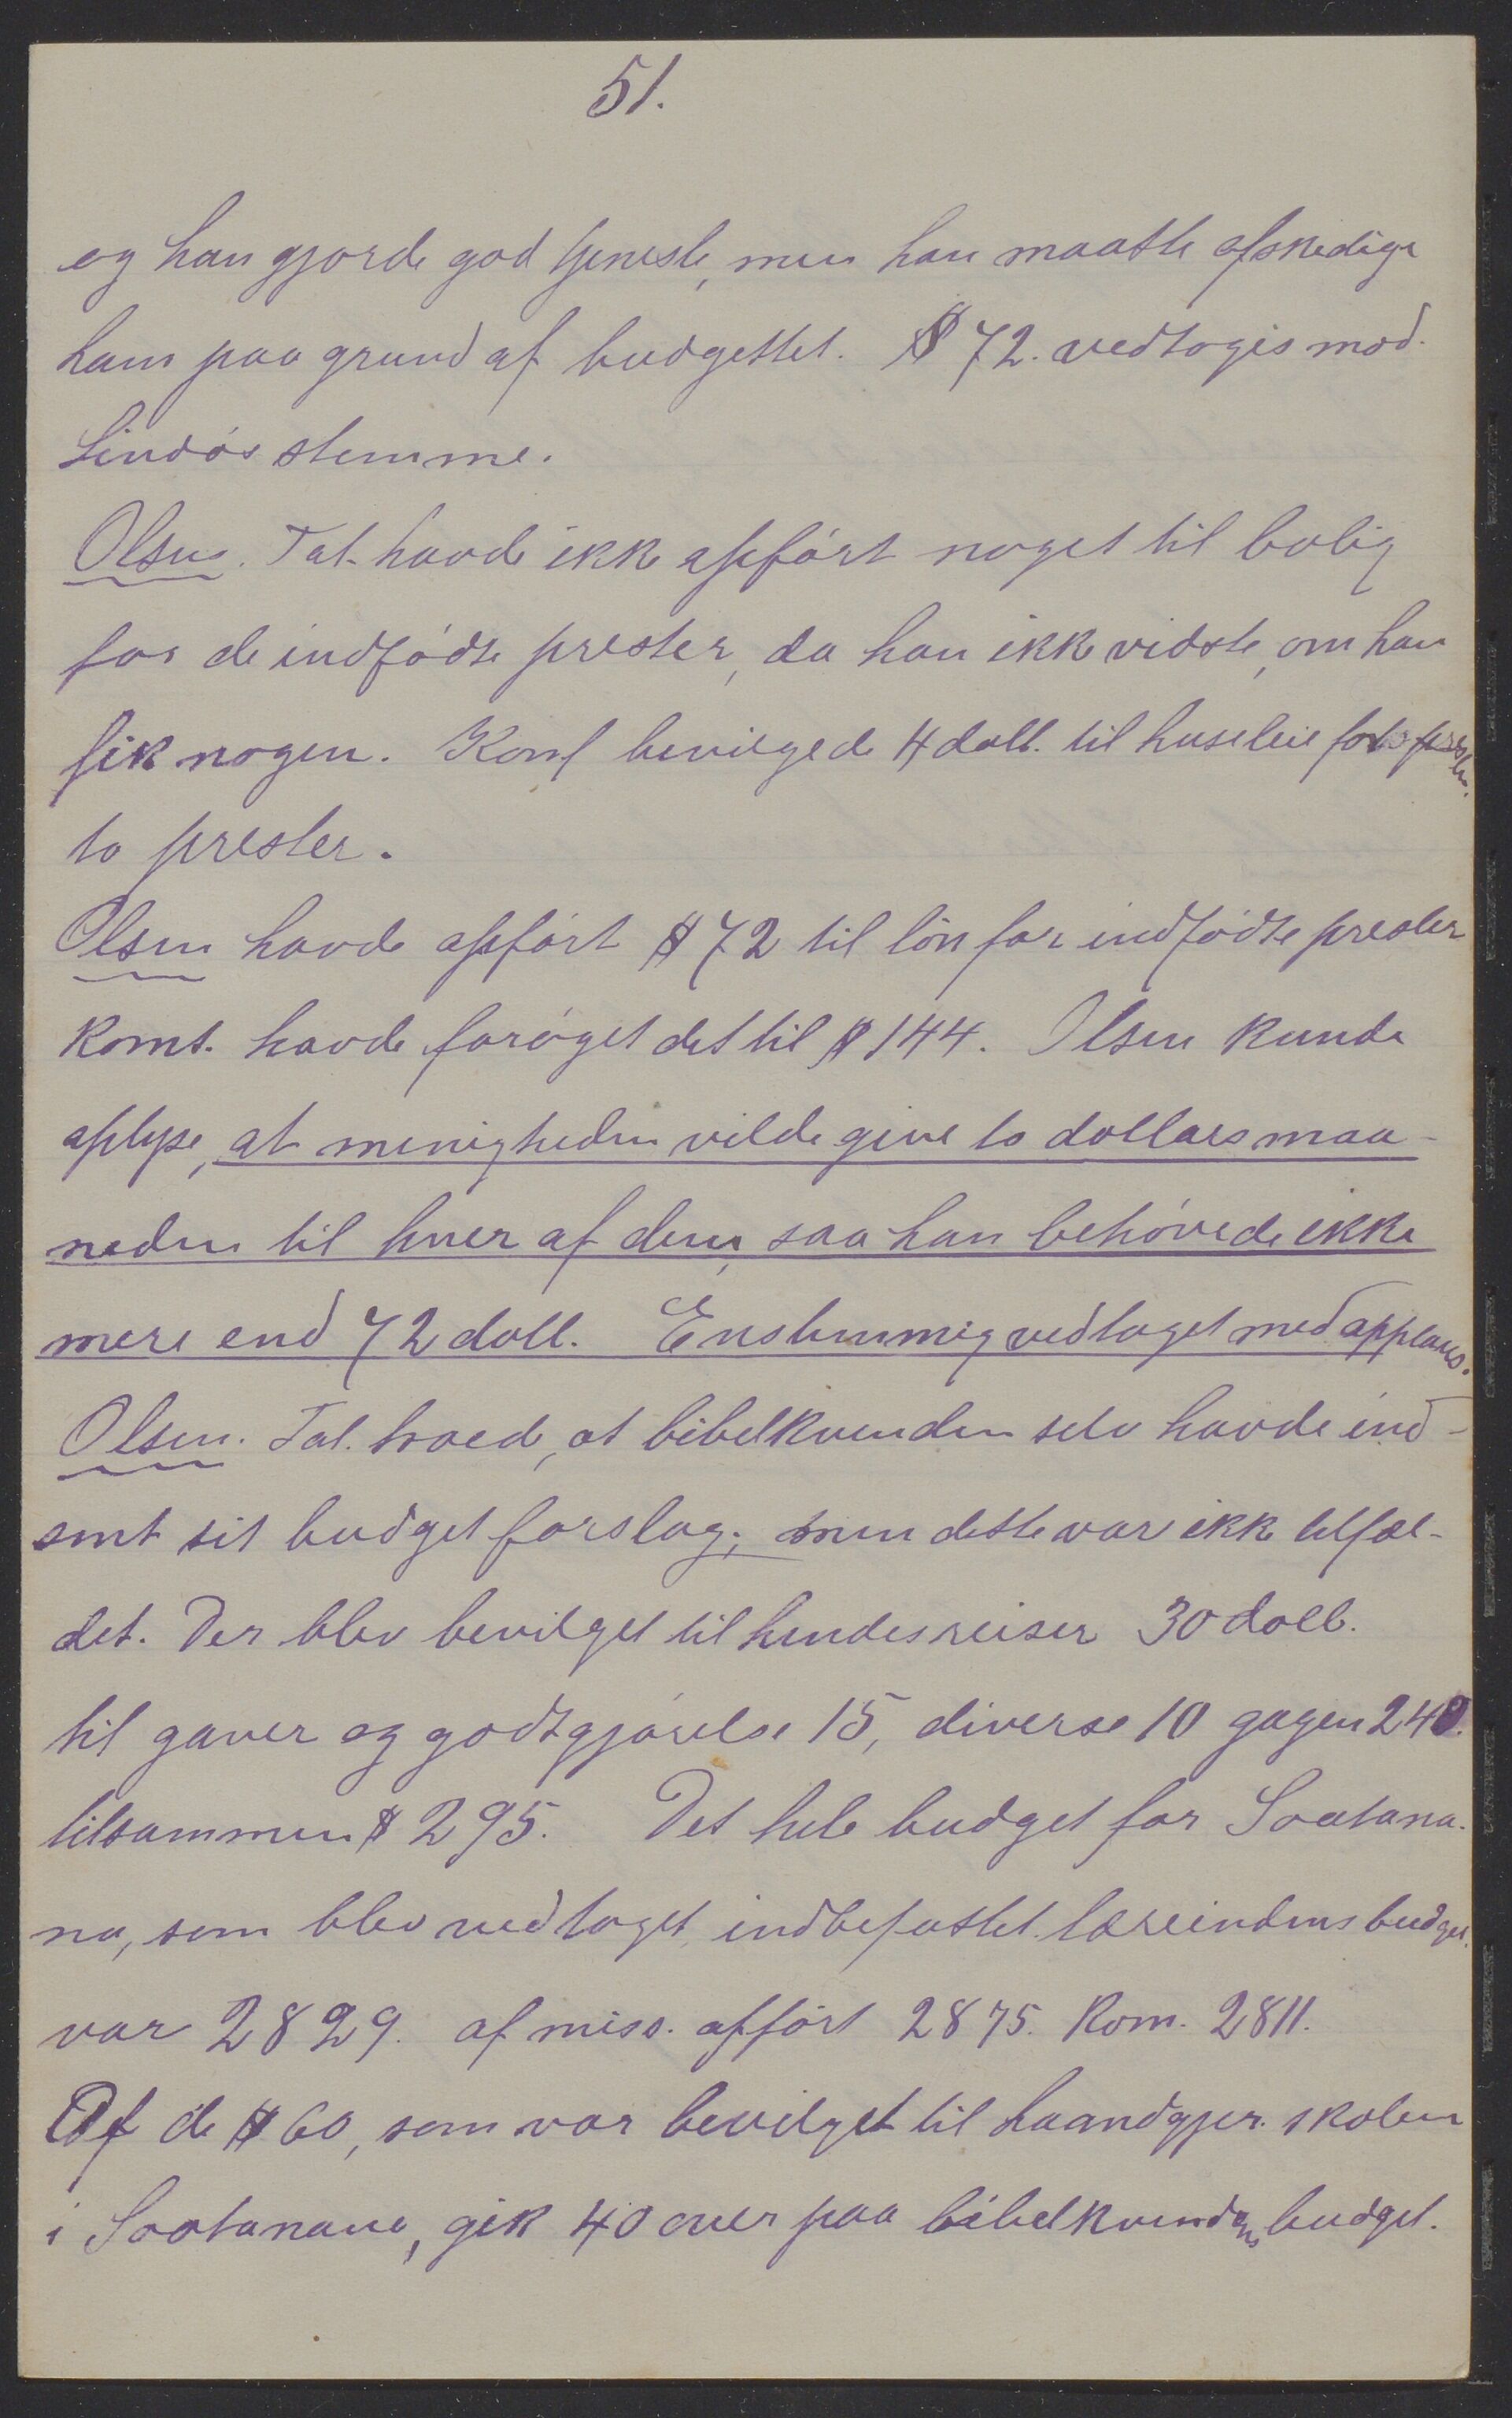 51.
og han gjorde god tjeneste, men han maatte afskedige
ham paa grund af budgettet. $ 72. vedtoges mod
Lindøs stemme.
Olsen. Tal. havde ikke opført noget til bolig
for de indfødte prester, da han ikke vidste, om han
fik nogen. Konf bevilgede 4 doll. til husleie for prester.
to prester.
Olsen havde opført $ 72 til løn for indfødte prester
Komt. havde forøget det til $ 144. Olsen kunde
oplyse, at menigheden vilde give to dollars maa-
neden til hver af dem, saa han behøvede ikke
mere end 72 doll. Enstemmig vedtaget med applaus.
Olsen. Tal. troede, at bibelkvinden selv havde ind-
sent sit budgetforslag; men dette var ikke tilfæl-
det. Der blev bevilget til hendes reiser 30 doll.
til gaver og godtgjørelse 15, diverse 10 gagen 240.
tilsammen $ 295. Det hele budget for Soatana-
na, som blev vedtaget, indbefattet lærerindens budget.
var 2829. af miss. opført 2875. Kom. 2811.
Af de $ 60, som var bevilget til haandgjer. skolen
i Soatanana, gik 40 over paa bibelkvindens budget.